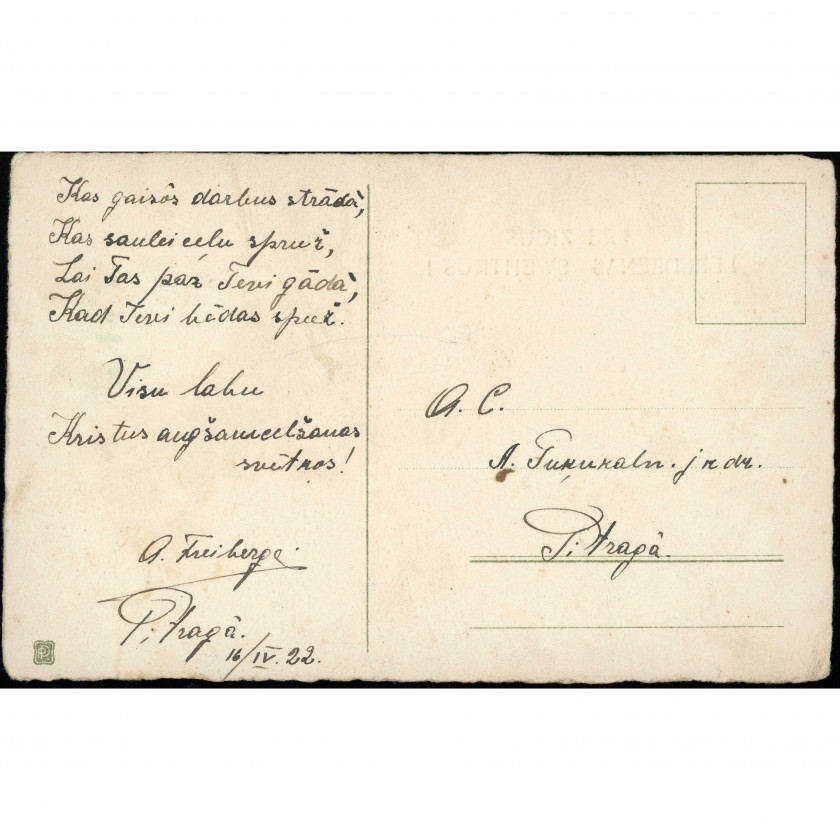 Kas gaisôs darbus strādā,
Kas saulei ceļu sprež,
Lai Tas par Tevi gādā,
Kad Tevi bēdas spež.
Visu labu
Kristus augšamcelšanas
svētkos!
A. Freiberge.
Pitragâ.
16/IV. 22.
A. C.
A. jkdz.
Pitragâ.